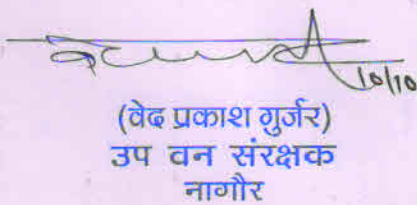 10/10
(वेद प्रकाश गुर्जर)
उप वन संरक्षक
नागौर